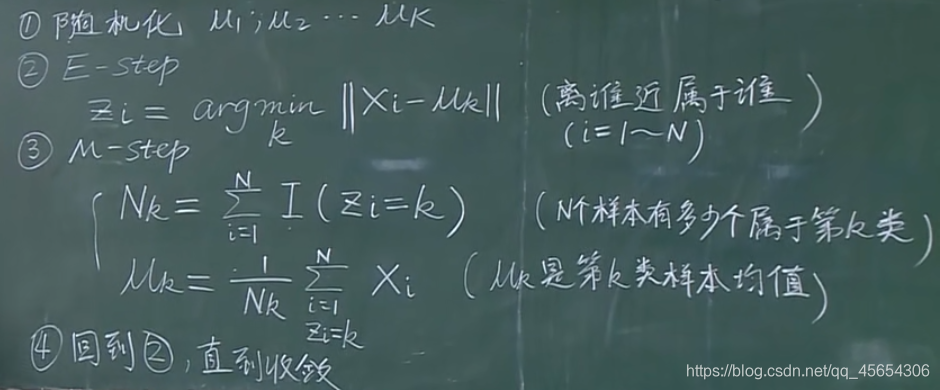 ① 随机化 μ1, μ2 ··· μK
② E-step
zi = argmin k ‖Xi-μk‖ (离谁近属于谁)
(i=1~N)
③ M-step
Nk = N Σ i=1 I(zi=k) (N个样本有多少个属于第k类)
μk = 1/Nk N Σ i=1 zi=k Xi (μk是第k类样本均值)
④ 回到②,直到收敛
https://blog.csdn.net/qq_45654306